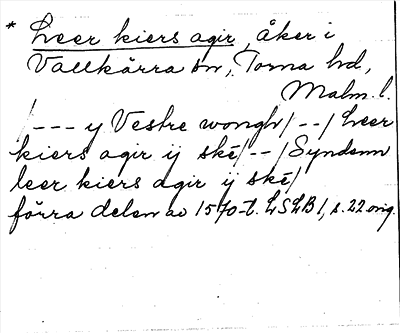 * Leer kiers agir, åker i
Vallkärra sn, Torna hd,
Malm. l.
/--- y Vestre wongh/--/ Leer
kiers agir ij ské/--/Syndenn
leer kiers agir ij ské/
förra delen av 1570-t. LSLB 1, s. 22 orig.